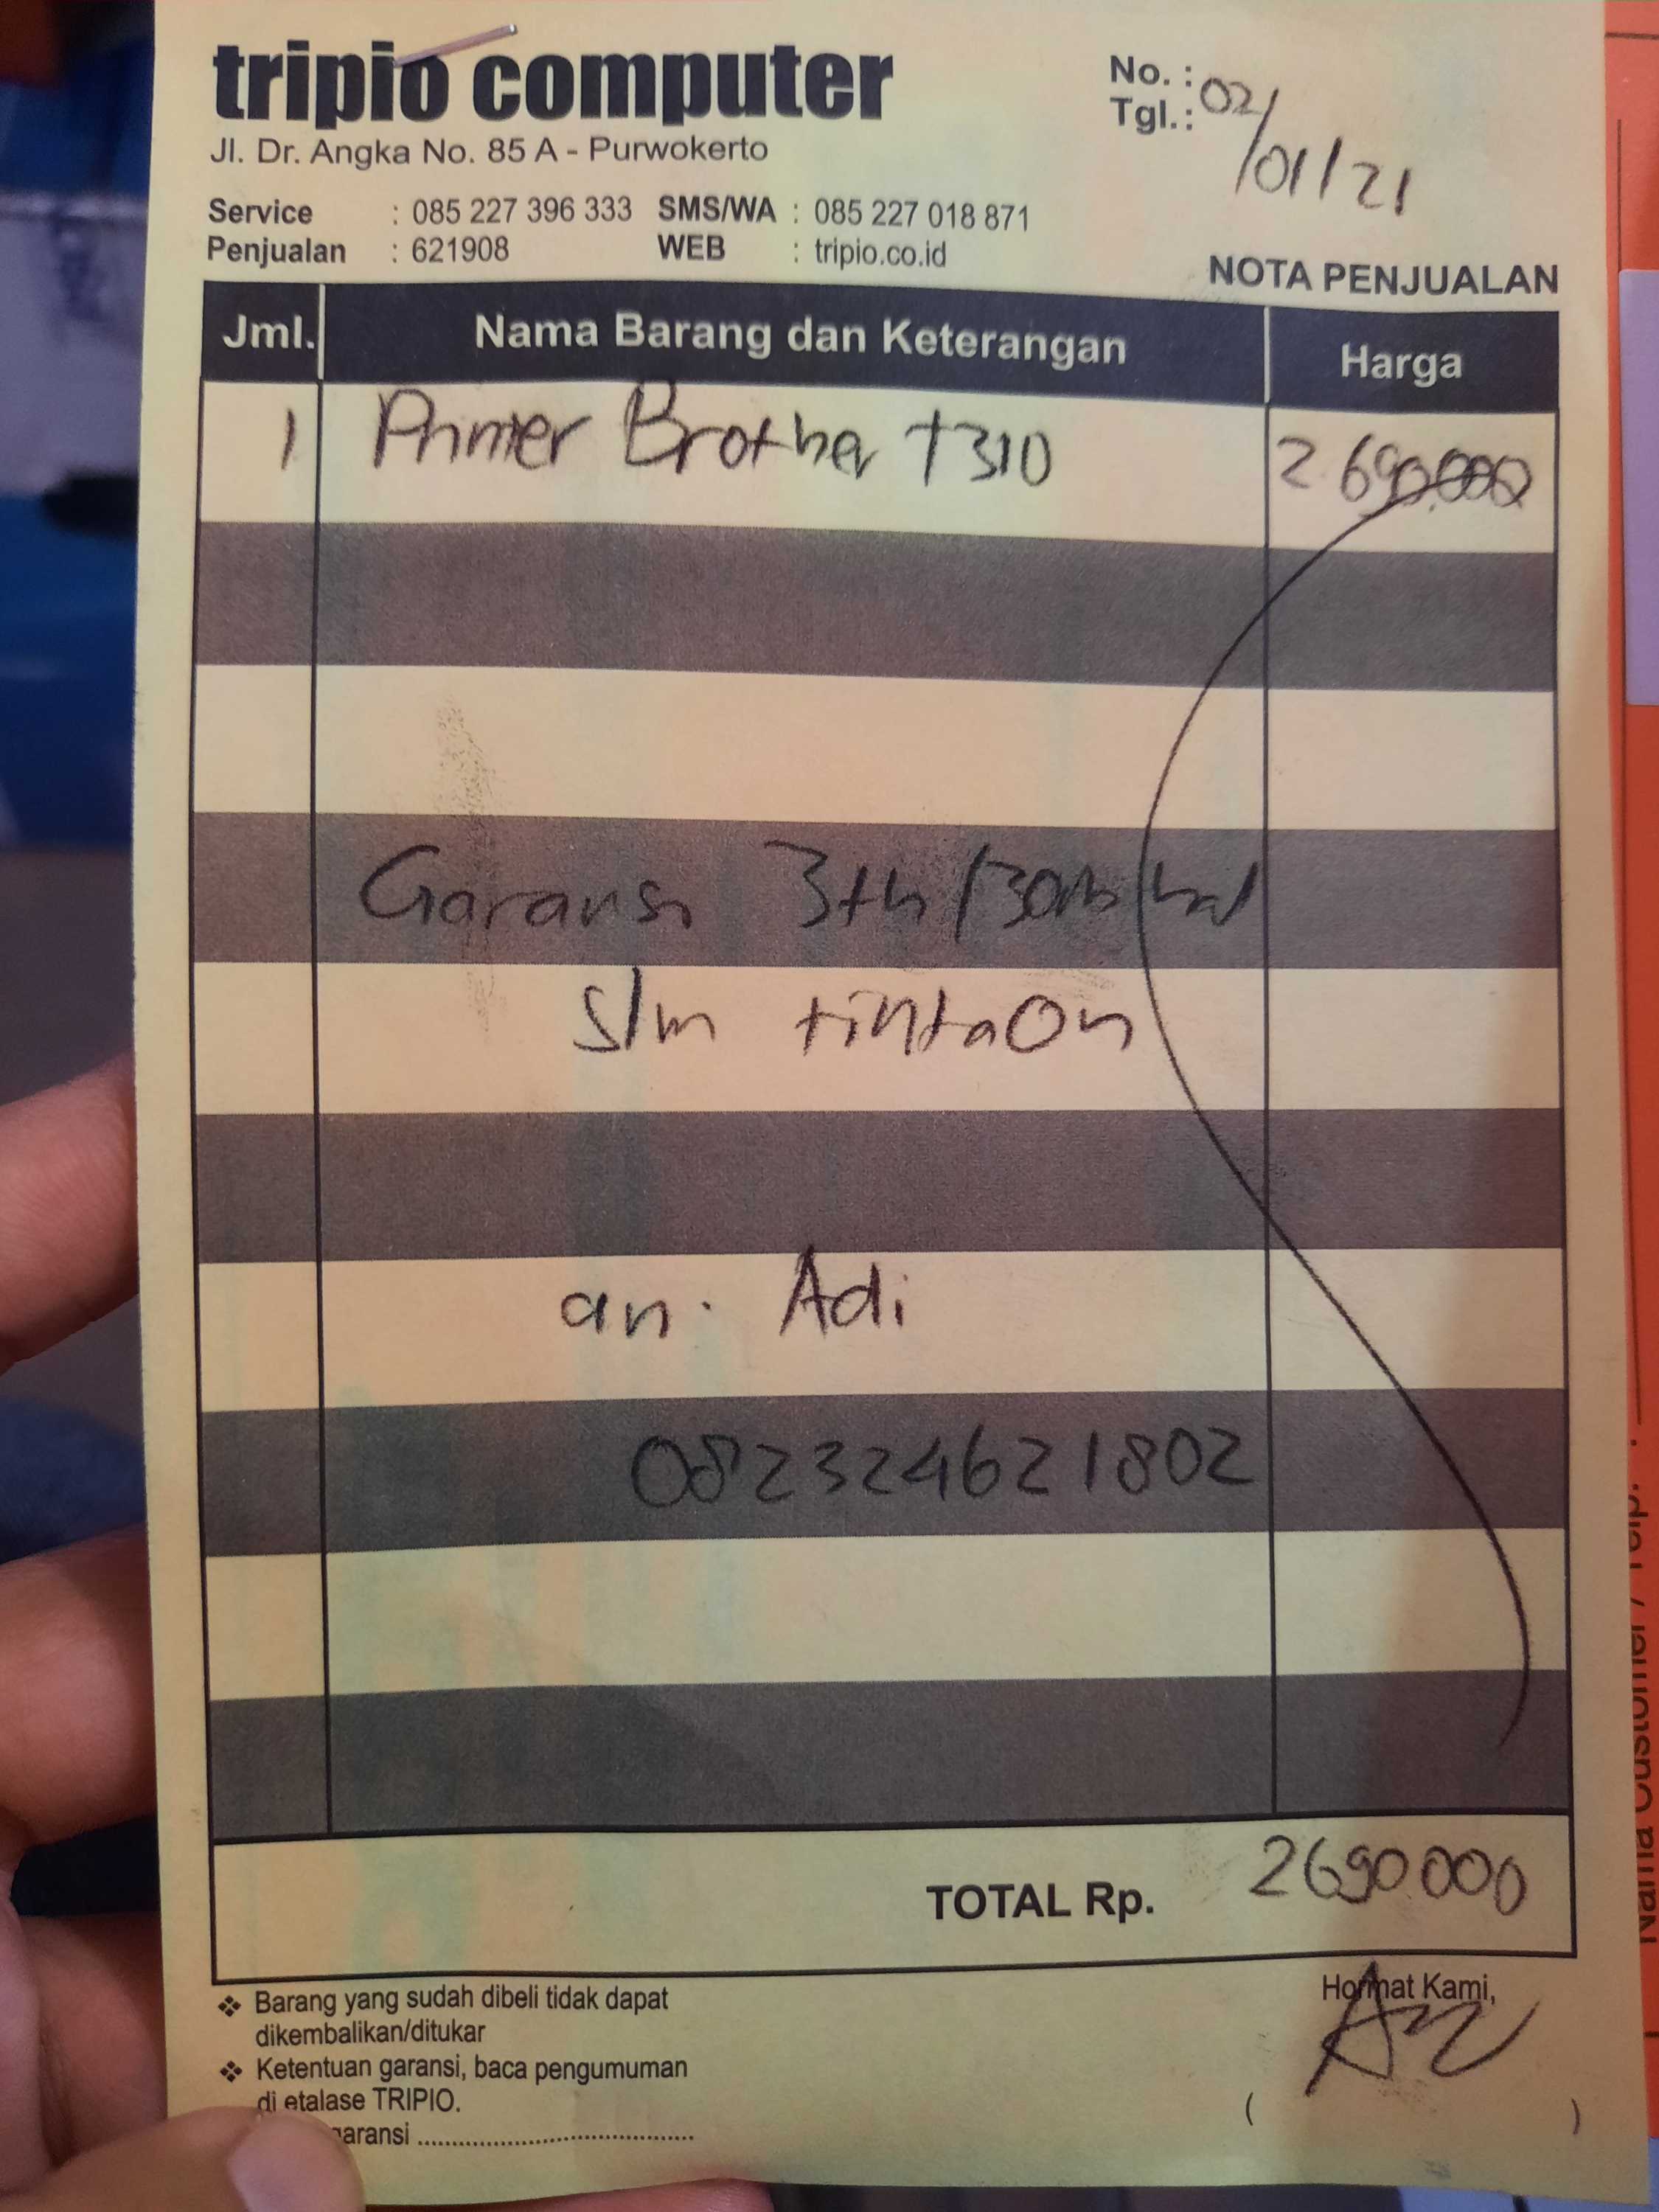 tripio computer
Jl. Dr. Angka No. 85 A - Purwokerto
No. :
Tgl.: 02/01/21
Service : 085 227 396 333 SMS/WA : 085 227 018 871
Penjualan : 621908 WEB : tripio.co.id
NOTA PENJUALAN
Jml. Nama Barang dan Keterangan Harga
1 Printer Brother T310 2.690.000
Garansi 3th /
slm tintaOri
an. Adi
082324621802
TOTAL Rp. 2690000
❖ Barang yang sudah dibeli tidak dapat
dikembalikan/ditukar
❖ Ketentuan garansi, baca pengumuman
di etalase TRIPIO.
garansi
Hormat Kami,
( )
Nama Customer / Telp. :